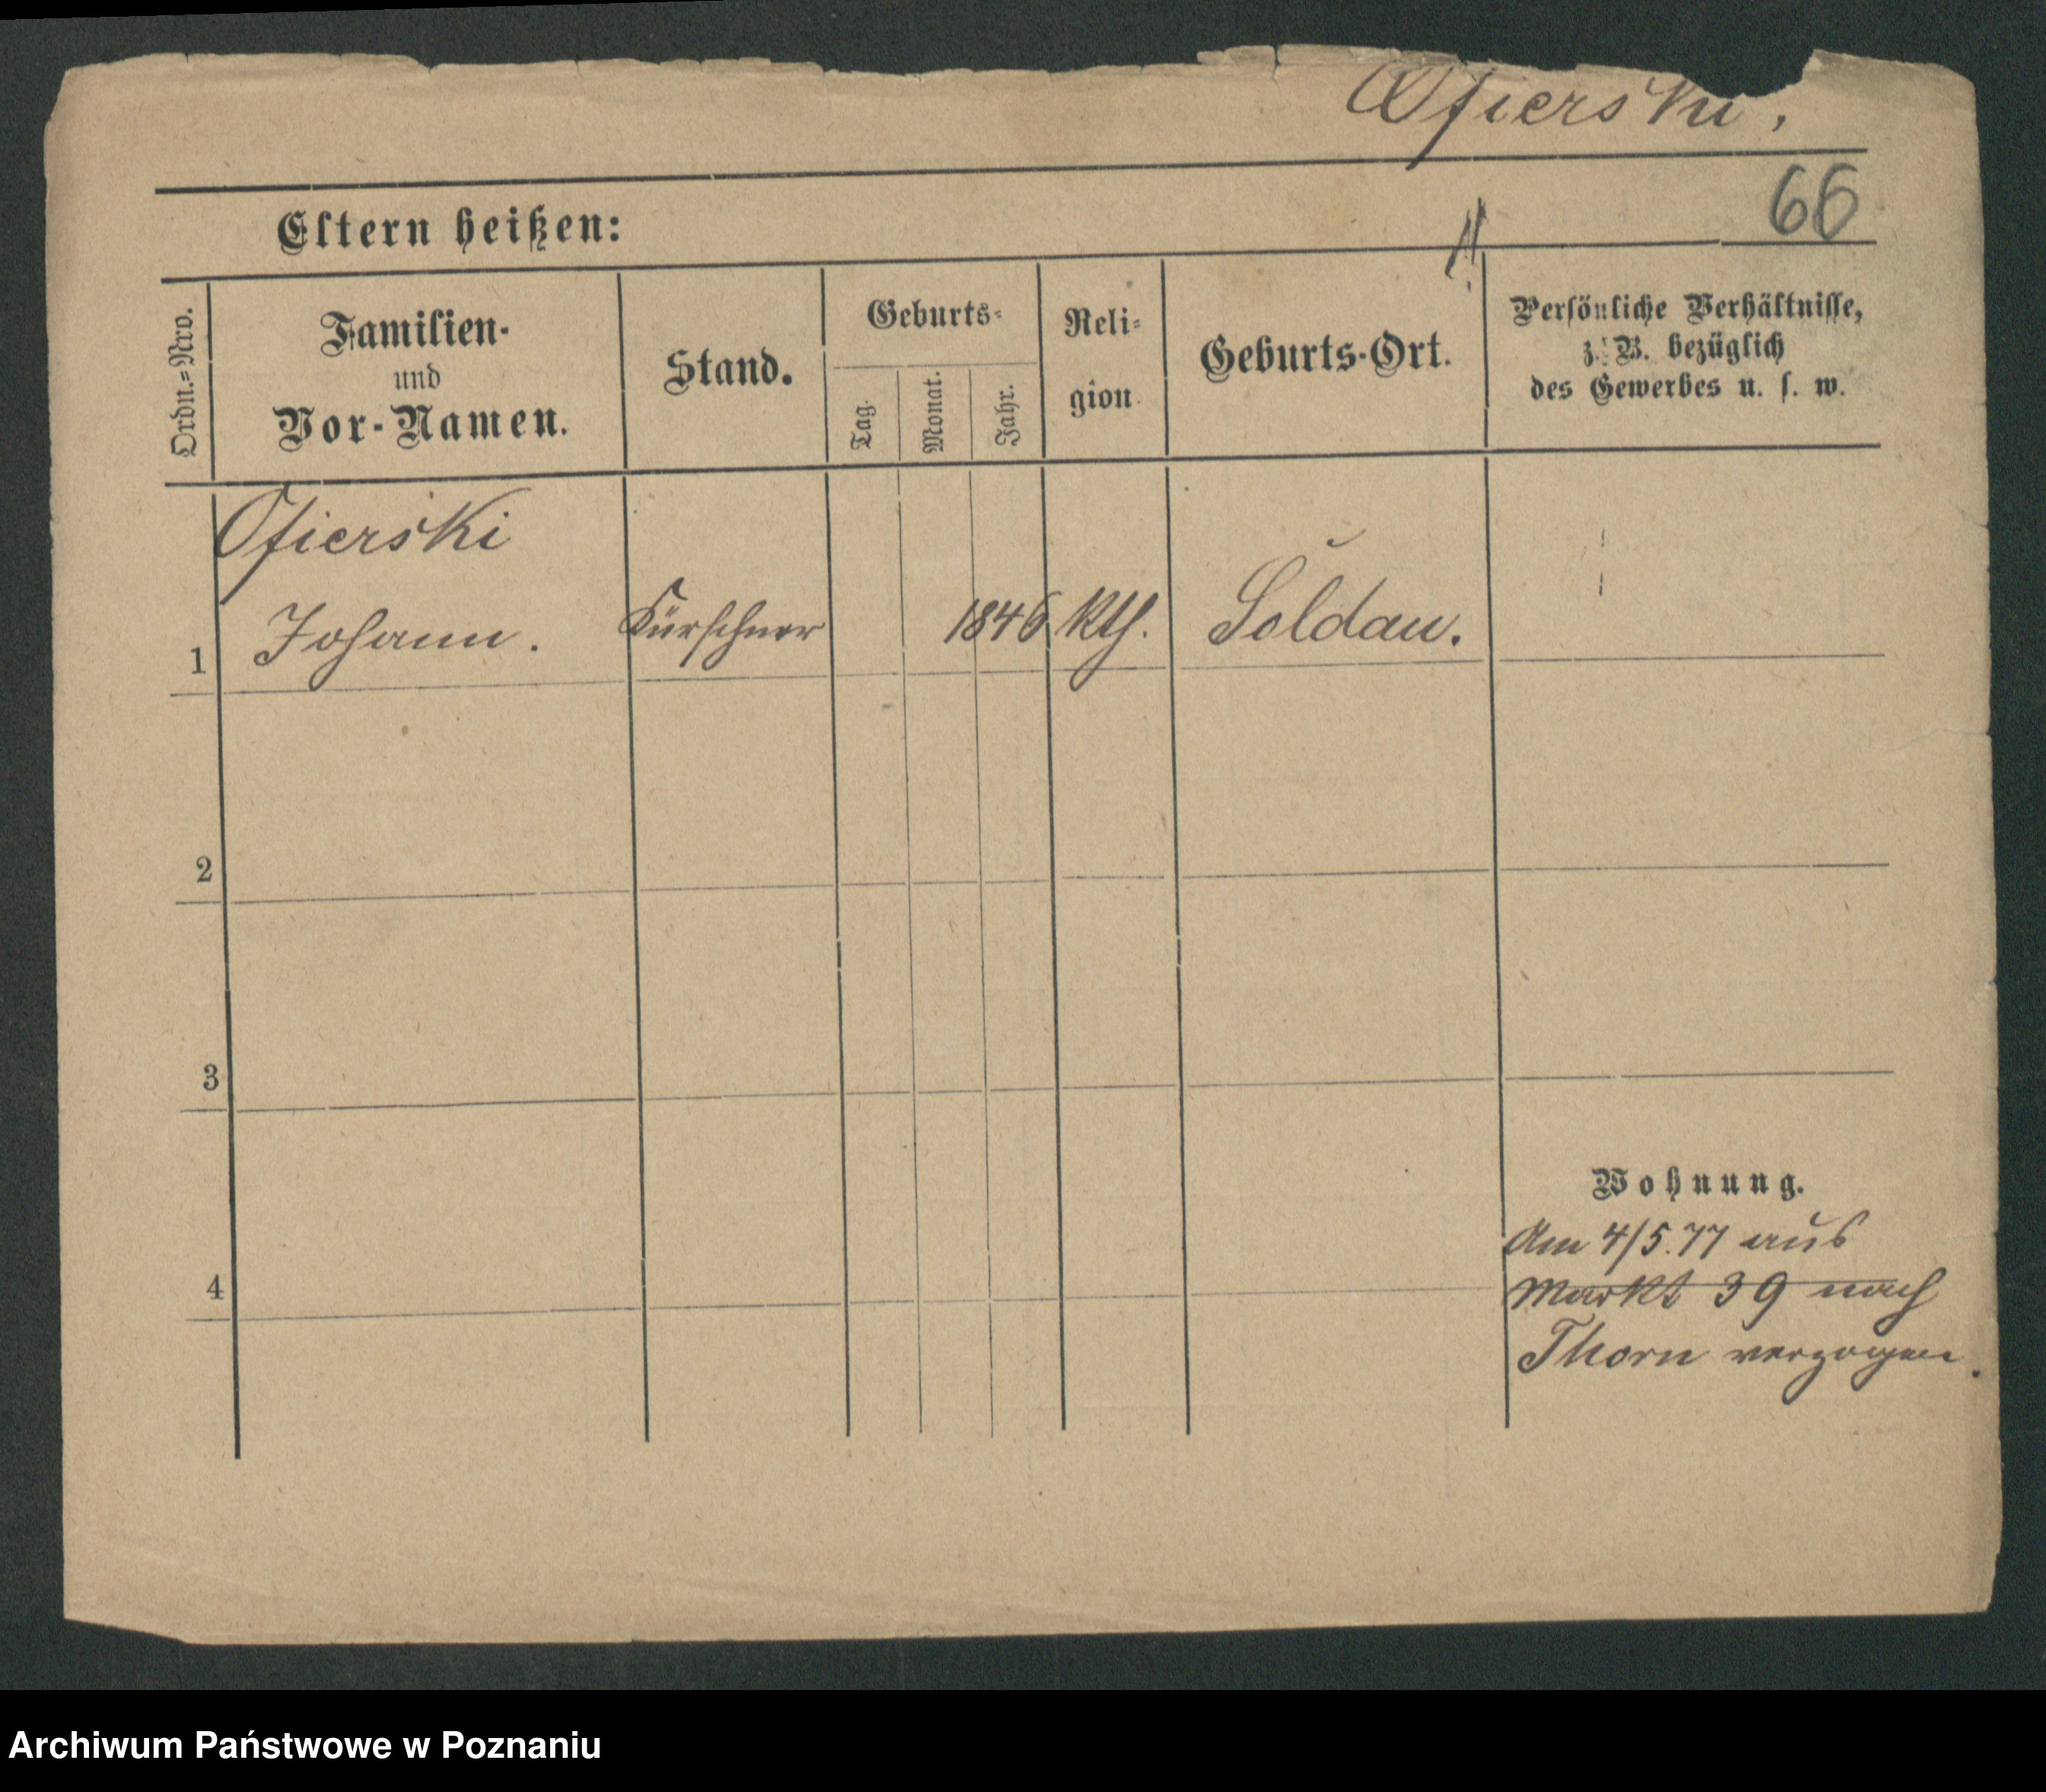 Ofierski,
66
Eltern heißen:
Ordn.=Nro.
Familien-
und
Vor-Namen.
Stand.
Geburts-
Tag.
Monat.
Jahr.
Reli-
gion
Geburts-Ort.
Persönliche Verhältnisse,
z. B. bezüglich
des Gewerbes u. s. w.
Ofierski
1 Johann. Kürschner 1846 kth. Soldau.
2
3
Wohnung.
Am 4/5.77 aus
4 Markt 39 nach
Thorn verzogen.
Archiwum Państwowe w Poznaniu